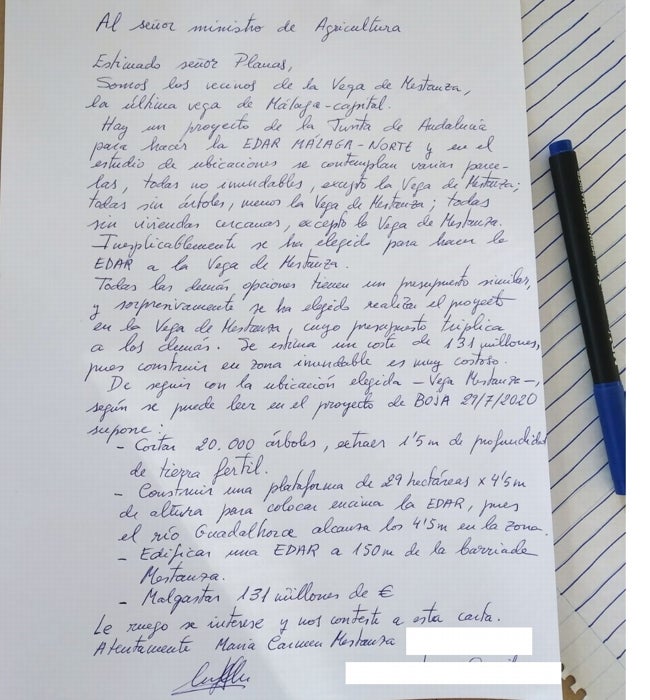 Al señor ministro de Agricultura
Estimado señor Planas,
Somos los vecinos de la Vega de Mestanza,
la última vega de Málaga-capital.
Hay un proyecto de la Junta de Andalucía
para hacer la EDAR MÁLAGA-NORTE y en el
estudio de ubicaciones se contemplan varias parce-
las, todas no inundables, excepto la Vega de Mestanza;
todas sin árboles, menos la Vega de Mestanza; todas
sin viviendas cercanas, excepto la Vega de Mestanza.
Inexplicablemente se ha elegido para hacer la
EDAR a la Vega de Mestanza.
Todas las demás opciones tienen un presupuesto similar,
y sorpresivamente se ha elegido realizar el proyecto
en la Vega de Mestanza, cuyo presupuesto triplica
a los demás. Se estima un coste de 131 millones,
pues construir en zona inundable es muy costoso.
De seguir con la ubicación elegida - Vega Mestanza -,
según se puede leer en el proyecto de BOJA 27/7/2020
supone:
- Cortar 20.000 árboles, extraer 1'5m de profundidad
de tierra fértil.
- Construir una plataforma de 29 hectáreas x 4'5m
de altura para colocar encima la EDAR, pues
el río Guadalhorce alcanza los 4'5m en la zona.
- Edificar una EDAR a 150m de la barriada
Mestanza.
- Malgastar 131 millones de €
Le ruego se interese y nos conteste a esta carta.
Atentamente María Carmen Mestanza